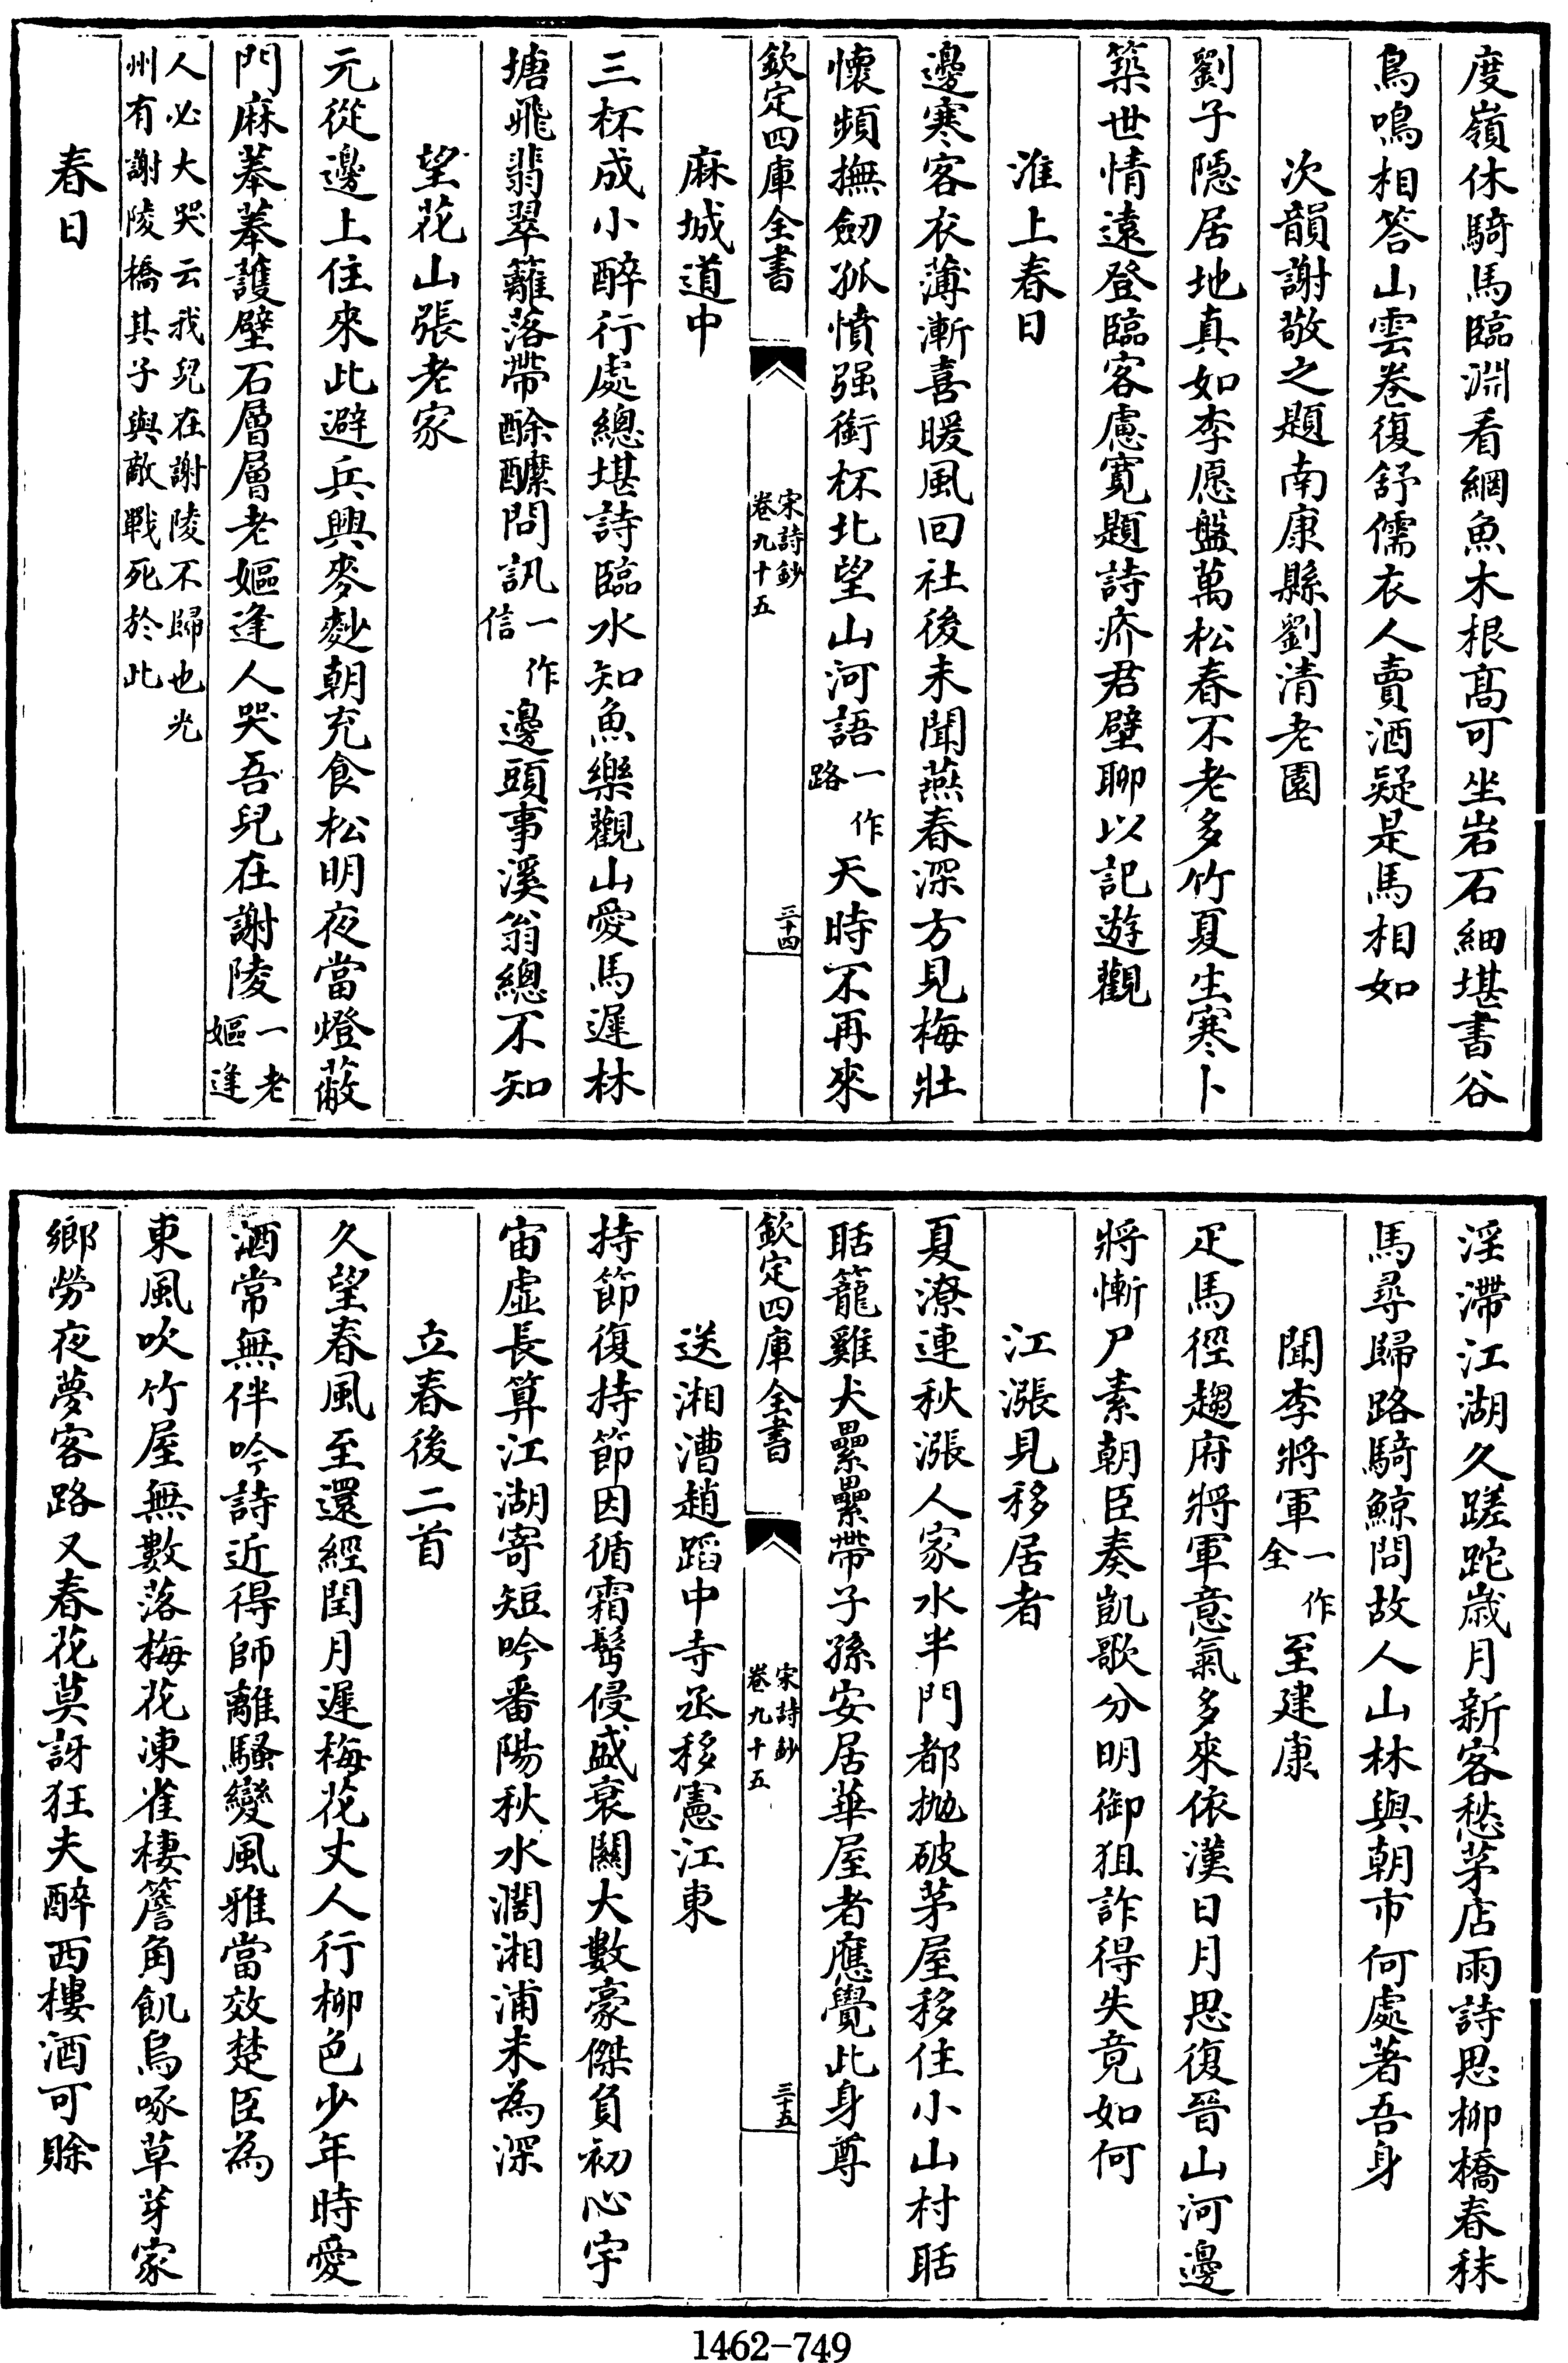 度嶺休騎馬臨淵看綱魚木根髙可坐岩石細堪書谷
鳥鳴相答山雲卷復舒儒衣人賣酒疑是馬相如
次韻謝敬之題南康縣劉清老園
劉子隱居地真如李愿盤萬松春不老多竹夏生寒卜
築世情遠登臨客慮寛題詩疥君壁聊以記遊觀
淮上春日
邊寒客衣薄漸喜暖風回社後未聞燕春深方見梅壯
懷頻撫劒孤憤强銜杯北望山河語一作路天時不再來
欽定四庫全書
宋詩鈔
卷九十五
三十四
麻城道中
三杯成小醉行處總堪詩臨水知魚樂觀山愛馬遲林
塘飛翡翠籬落帶酴醿問訊一作信邊頭事溪翁總不知
望花山張老家
元從邊上住來此避兵興麥麨朝充食松明夜當燈蔽
門麻菶菶護壁石層層老嫗逢人哭吾兒在謝陵一老嫗逢
人必大哭云我兒在謝陵不歸也光
州有謝陵橋其子與敵戰死於此
春日
淫滯江湖久蹉跎歲月新客愁茅店雨詩思柳橋春秣
馬尋歸路騎鯨問故人山林與朝市何處著吾身
聞李將軍一作全至建康
疋馬徑趨府將軍意氣多來依漢日月思復晉山河邊
將慚尸素朝臣奏凱歌分明御狙詐得失竟如何
江漲見移居者
夏潦連秋漲人家水半門都抛破茅屋移住小山村聒
聒籠雞犬纍纍帶子孫安居華屋者應覺此身尊
欽定四庫全書
宋詩鈔
卷九十五
三十五
送湘漕趙蹈中寺丞移憲江東
持節復持節因循霜髩侵盛衰關大數豪傑負初心宇
宙虛長算江湖寄短吟番陽秋水濶湘浦未為深
立春後二首
久望春風至還經閏月遲梅花丈人行柳色少年時愛
酒常無伴吟詩近得師離騷變風雅當效楚臣為
東風吹竹屋無數落梅花凍雀棲簷角飢烏啄草芽家
鄉勞夜夢客路又春花莫訝狂夫醉西樓酒可賒
1462-749